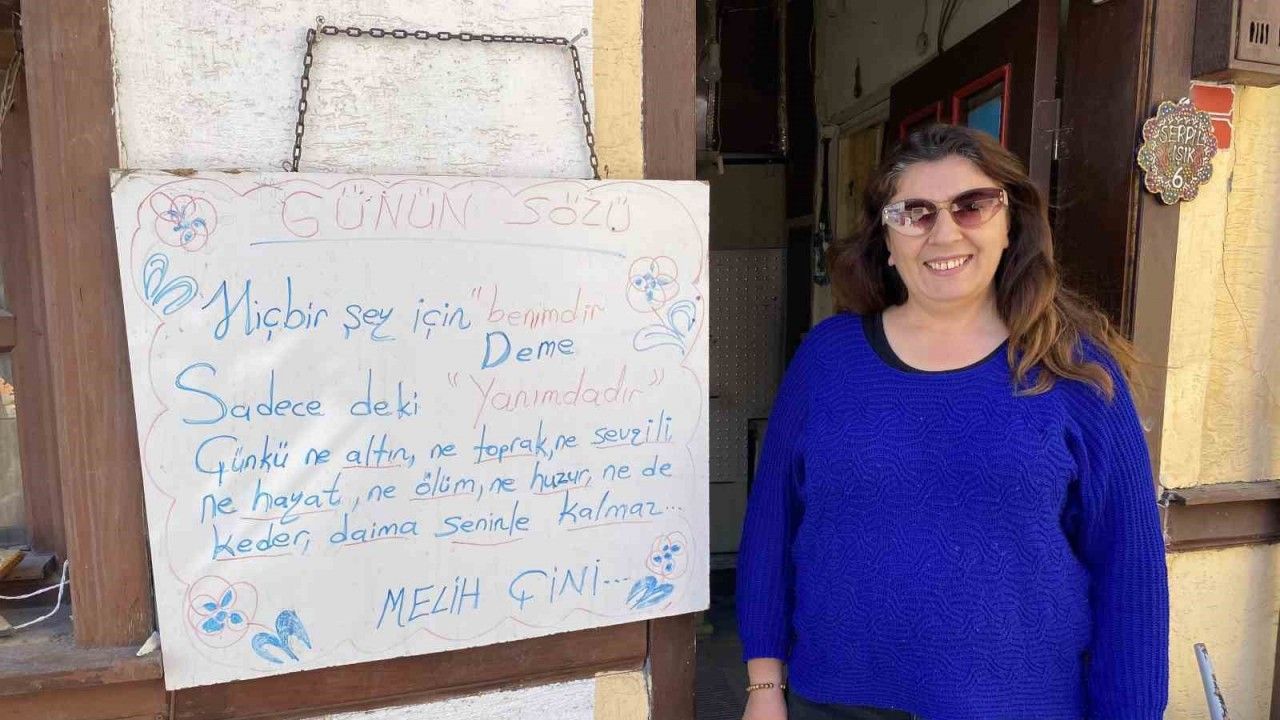 GÜNÜN SÖZÜ
Hiçbir şey için "benimdir
Deme
Sadece deki "Yanımdadır"
Çünkü ne altın, ne toprak, ne sevgili,
ne hayat, ne ölüm, ne huzur, ne de
keder, daima seninle kalmaz...
MELİH ÇİNİ...
SERPİL
AŞIK
6